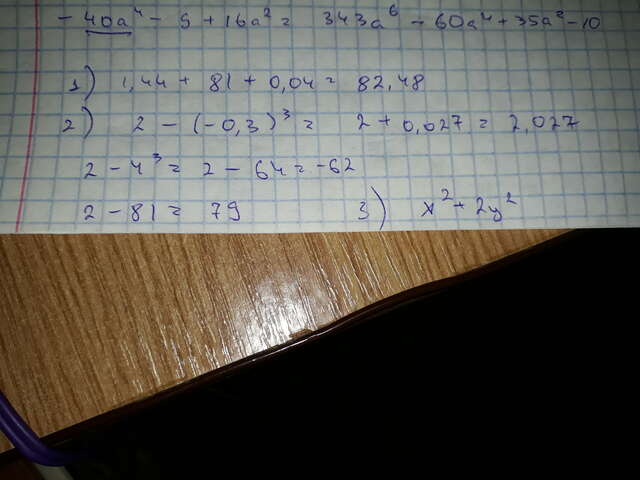 - 40a⁴ - 5 + 16a² = 343a⁶ - 60a⁴ + 35a² - 10
1) 1,44 + 81 + 0,04 = 82,48
2) 2 - (-0,3)³ = 2 + 0,027 = 2,027
2 - 4³ = 2 - 64 = -62
2 - 81 = 79
3) x² + 2y²